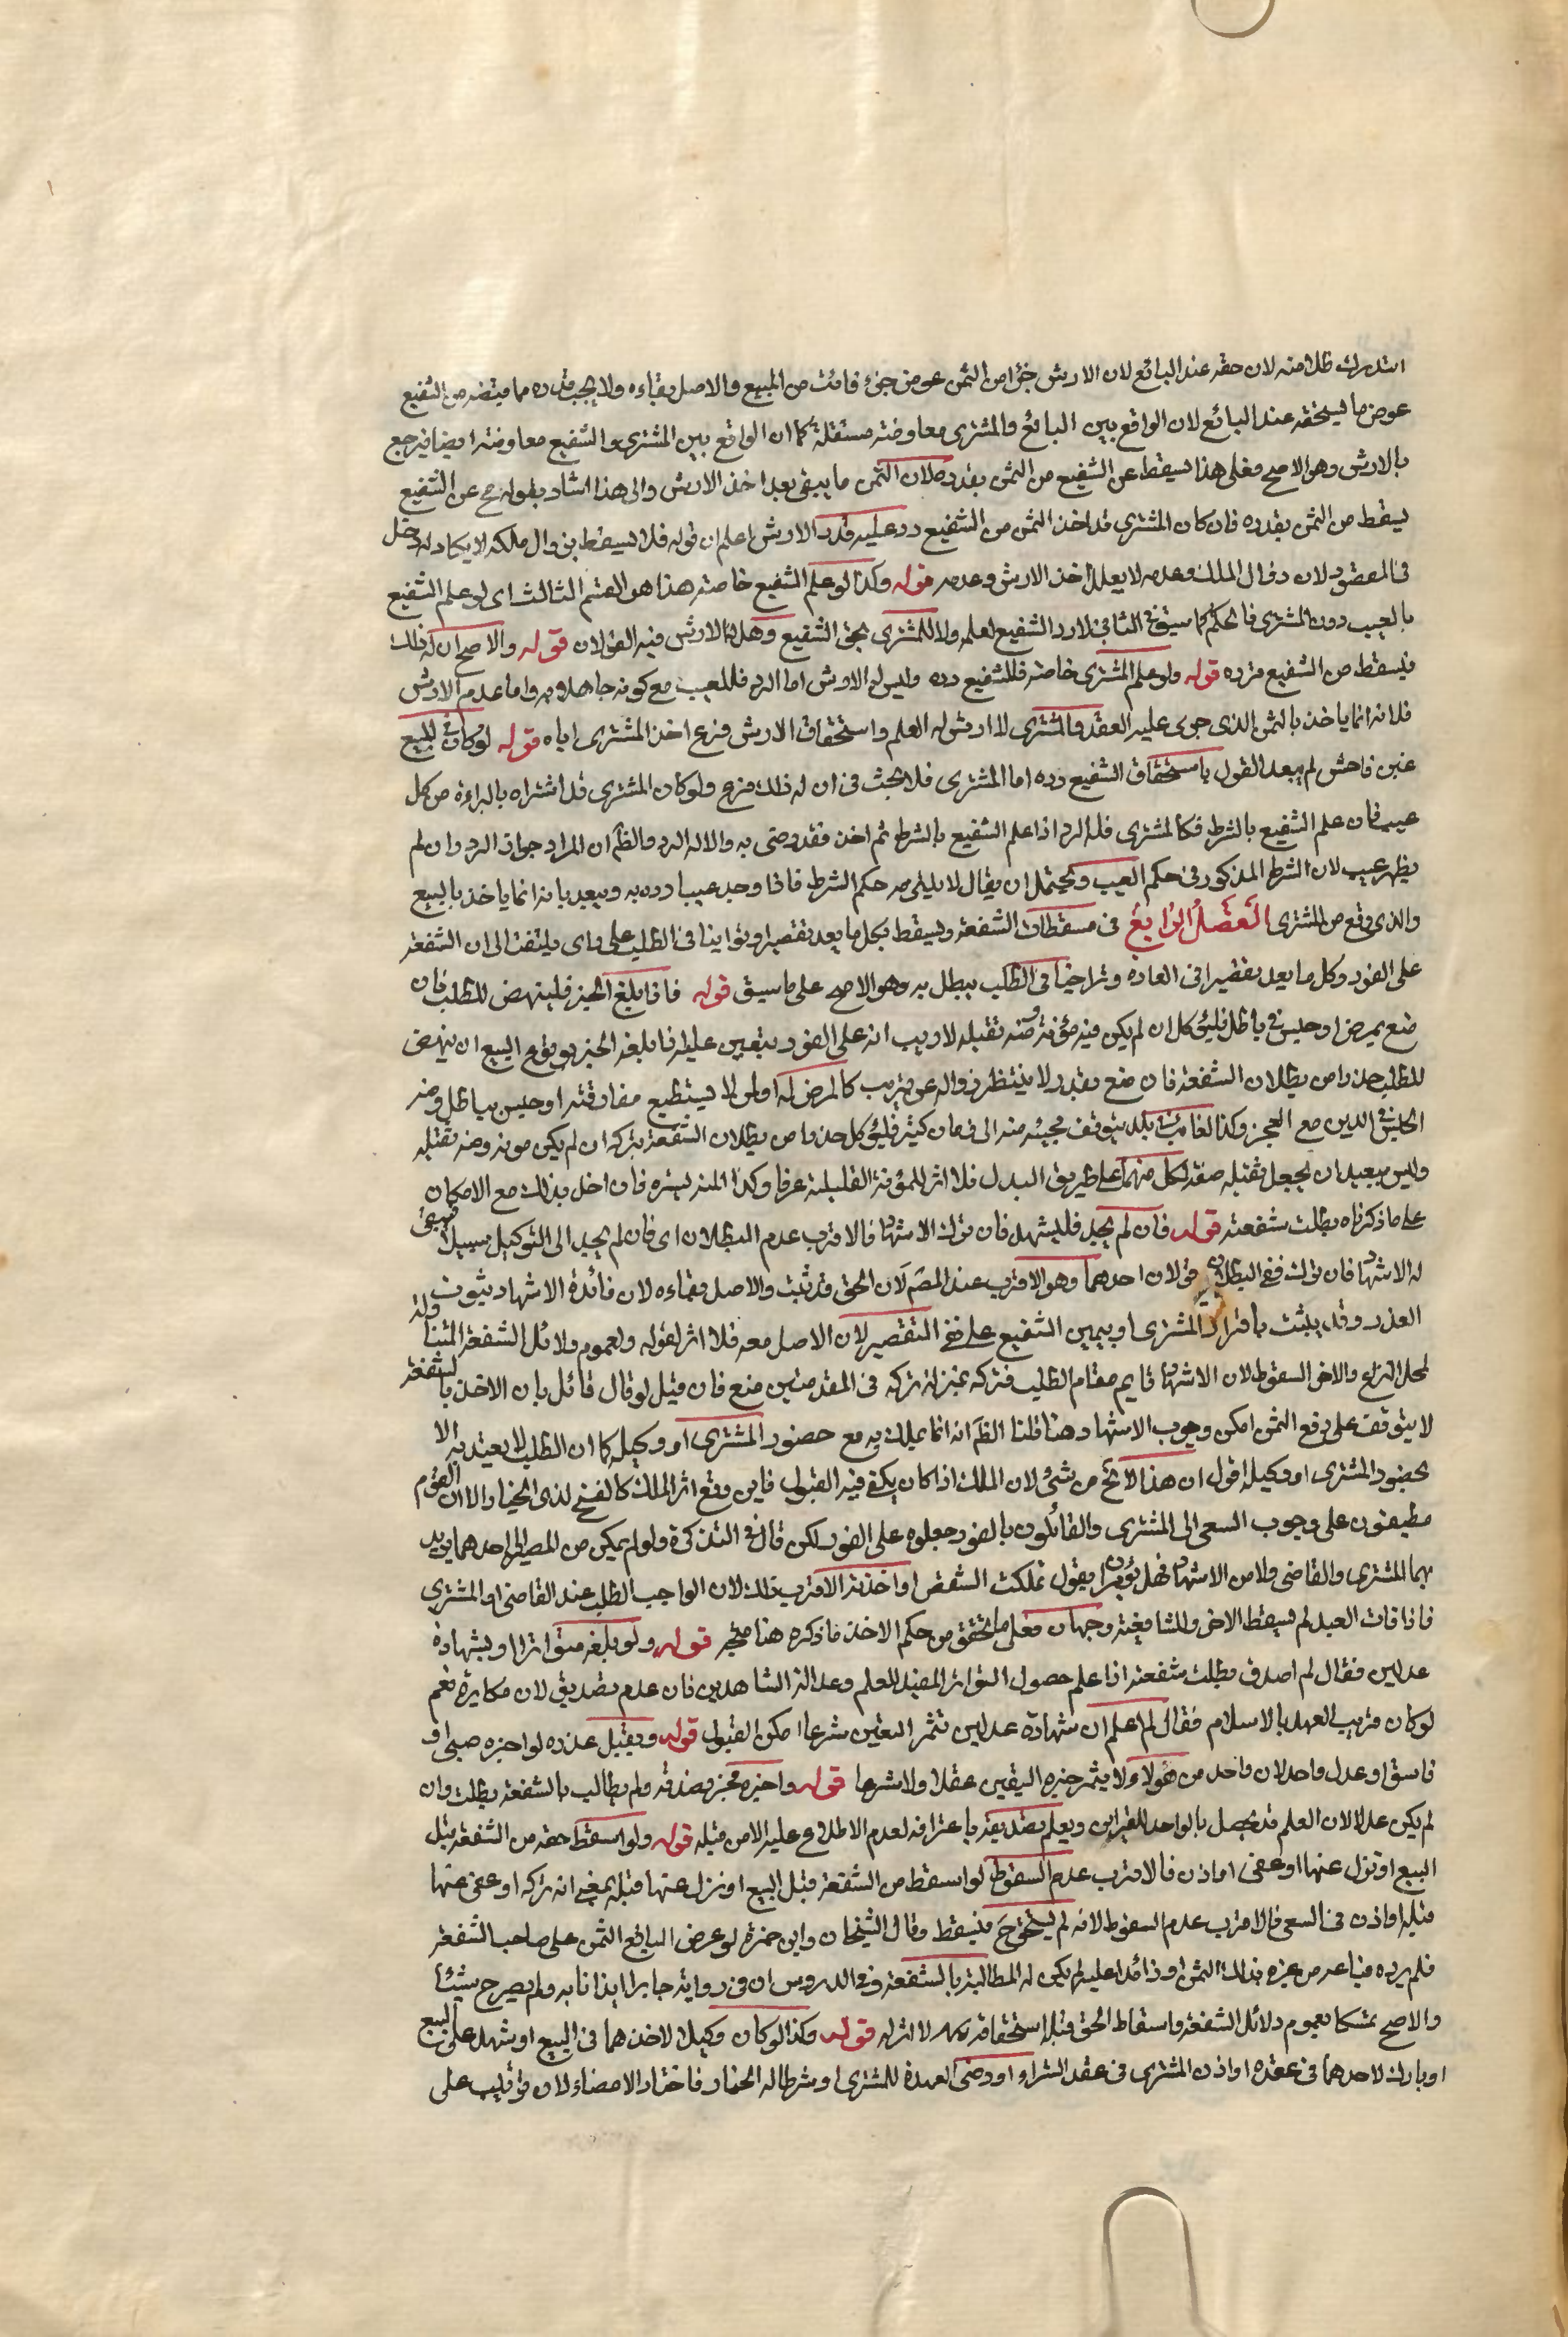 استدراك ظلامته لان حقه عند البائع لان الارش جزؤا من الثمن عوض جزء فائت من المبيع والاصل بقاءه ولا يجب قدره مما قبضه من الشفيع
عوض ما يستحقه عند البائع لان الواقع بين البائع والمشترى معاوضة مستقلة كما ان الواقع بين المشترى والشفيع معاوضة ايضا فيرجع
بالارش وهو الاصح فعلى هذا يسقط عن الشفيع من الثمن بقدره لان الثمن ما يبقى بعد اخذ الارش والى هذا اشار بقوله ح عن الشفيع
يسقط من الثمن بقدره فان كان المشترى قد اخذ الثمن من الشفيع رد عليه قدر الارش اعلم ان قوله فلا يسقط بزوال ملكه لا يكاد له دخل
فى المقصود لان زوال الملك وعدمه لا يعلل اخذ الارش وعدمه قوله وكذا لو علم الشفيع خاصة هذا هو القسم الثالث اى لو علم الشفيع
بالعيب دون المشترى فالحكم كما سبق فى الثانى فلا رد للشفيع لعلمه ولا للمشترى بحق الشفيع وهل له الارش فيه القولان قوله والاصح ان له ذلك
فيسقط من الشفيع قدره قوله ولو علم المشترى خاصة فللشفيع رده وليس له الارش اما الرد فللعيب مع كونه جاهلا به واما عدم الارش
فلانه انما ياخذ بالثمن الذى جرى عليه العقد والمشترى لا ارش له للعلم واستحقاق الارش فرع اخذ المشترى اياه قوله لو كان فى المبيع
غبن فاحش لم يبعد القول باستحقاق الشفيع رده اما المشترى فلا بحث فى ان له ذلك فرع ولو كان المشترى قد اشتراه بالبراءة من كل
عيب فان علم الشفيع بالشرط فكالمشترى فله الرد اذا علم الشفيع بالشرط ثم اخذ فقد رضى به والا له الرد والظ ان المراد جواز الرد وان لم
يظهر عيب لان الشرط المذكور فى حكم العيب ويحتمل ان يقال لا يلزمه حكم الشرط فاذا وجد عيبا رده به ويبعد بانه انما ياخذ بالبيع
والذى وقع من المشترى الفصل الرابع فى مسقطات الشفعة ويسقط بكل ما يعد تقصيرا وتوانيا فى الطلب على راى يلتفت الى ان الشفعة
على الفور وكل ما يعد تقصيرا فى العاده وتراخيا فى الطلب يبطل به وهو الاصح على ما سبق قوله فاذا بلغ الخبر فلينهض للطلب فان
منع بمرض او حبس فى باطل فليوكل ان لم يكن فيه مؤنة ومنه ثقيله لا ريب انه على الفور يتعين عليه اذا بلغه الخبر بوقوع البيع ان ينهض
للطلب حذرا من بطلان الشفعة فان منع بعذر لا ينتظر زواله عن قريب كالمرض له او لمن لا يستطيع مفارقته او حبس بباطل ومنه
الحبس فى الدين مع العجز وكذا الغائب فى بلد يتوقف مجيئه منه الى زمان كثير فليوكل حذرا من بطلان الشفعة بتركه ان لم يكن مونه ومنه ثقيله
وليس ببعيد ان يجعل ثقيله صفة لكل منهما على طريق البدل فلا اثر للمؤنة القليلة عرفا وكذا المنه ليسره فان اخل بذلك مع الامكان
على ما ذكرناه بطلت شفعته قوله فان لم يجد فليشهد فان ترك الاشهاد فالاقرب عدم البطلان اى فان لم يجد الى التوكيل سبيلا فينبغى
له الاشهاد فان ترك ففى البطلان قولان احدهما وهو الاقرب عند المص لان الحق قد ثبت والاصل بقاءه لان فائدة الاشهاد ثبوت
العذر وقد يثبت باقرار المشترى او بيمين الشفيع على نفى التقصير لان الاصل معه فلا اثر لقوله ولعموم دلائل الشفعة المتناولة
لمحل النزاع والاخر السقوط لان الاشهاد قايم مقام الطلب فتركه بمنزلة تركه فى المقدمتين منع فان قيل لو قال قائل بان الاخذ بالشفعة
لا يتوقف على دفع الثمن امكن وجوب الاشهاد هنا قلنا الظ انه انما يملك به مع حضور المشترى او وكيله كما ان الطلب لا يعتد به الا
بحضور المشترى او وكيله اقول ان هذا لا يخ من شئ لان الملك اذا كان يكفى فيه القبول فاين وقع اثر الملك كالفسخ لذى الخيار الا ان القوم
مطبقون على وجوب السعى الى المشترى والقائلون بالفور جعلوه على الفور لكن قال فى التذكرة ولو لم يتمكن من المصير الى احدهما يريد
بهما المشترى والقاضى ولا من الاشهاد فهل يؤمر ان يقول تملكت الشقص او اخذته الاقرب ذلك لان الواجب الطلب عند القاضى او المشترى
فاذا فات القيد لم يسقط الاخر وللشافعية وجهان فعلى ما تحقق من حكم الاخذ ما ذكره هنا متجه قوله ولو بلغه متواترا او بشهادة
عدلين فقال لم اصدق بطلت شفعته اذا علم حصول التواتر المفيد للعلم وعدالة الشاهدين فان عدم تصديق لان مكابرة نعم
لو كان قريب العهد بالاسلام فقال لم اعلم ان شهادة عدلين تثمر اليقين شرعا امكن القبول قوله ويقبل عذره لو اخبره صبى او
فاسق او عدل واحد لان واحد من هولاء لا يثمر خبره اليقين عقلا ولا شرعا قوله واخبره مخبر فصدقه ولم يطالب بالشفعة بطلت وان
لم يكن عدلا لان العلم قد يحصل بالواحد للقراين ويعلم تصديقه باعترافه لعدم الاطلاع عليه الا من قبله قوله ولو اسقط حقه من الشفعة قبل
البيع او نزل عنها او عفى او اذن فالاقرب عدم السقوط لو اسقط من الشفعة قبل البيع او نزل عنها قبله بمعنى انه تركه او عفى عنها
قبله او اذن فى البيع فالاقرب عدم السقوط لانه لم يستحق ح فيسقط وقال الشيخان وابن حمزة لو عرض البائع الثمن على صاحب الشفعة
فلم يرده فباعه من غيره بذلك الثمن او زائدا عليه لم يكن له المطالبة بالشفعة وفى الدروس ان فى رواية جابر ايذانا به ولم يصرح بشئ
والاصح تمسكا بعموم دلائل الشفعة واسقاط الحق قبل استحقاقه لا اثر له قوله وكذا لو كان وكيلا لاحدهما فى البيع او شهد على البيع
او بارك لاحدهما فى عقده او اذن المشترى فى عقد الشراء او ضمن العهدة للمشترى او شرطا له الخيار فاختار الامضاء لان ترتيب على